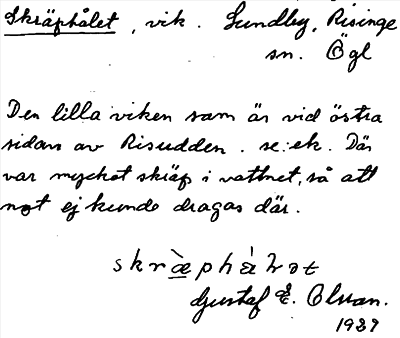 Skräphålet, vik. Sundby, Risinge
sn. Ögl
Den lilla viken som är vid östra
sidan av Risudden. se: ek. Där
var mycket skräp i vattnet, så att
not ej kunde dragas där.
skræ̀phå̀lət
Gustaf E. Olsson.
1937